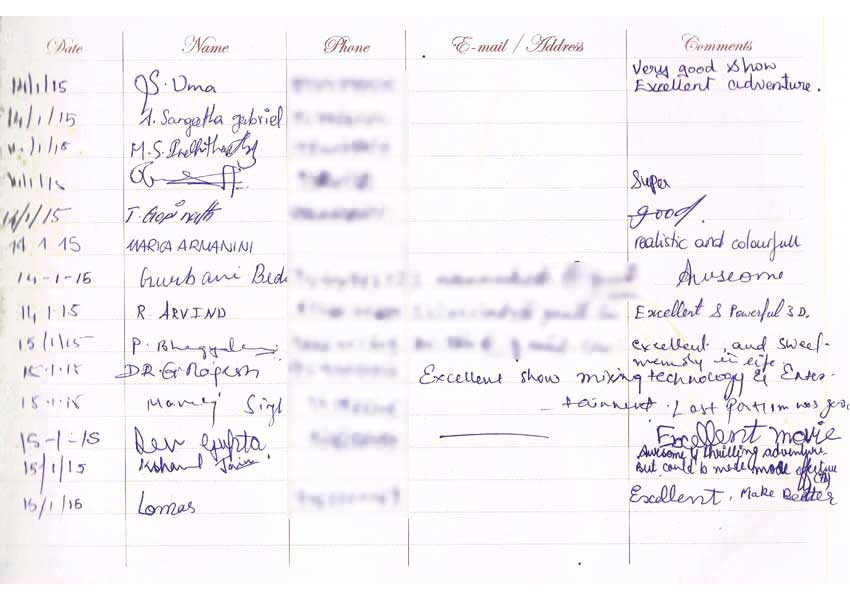 Date Name Phone E-mail / Address Comments
14/1/15 S. Uma Very good show
Excellent adventure.
14/1/15 A. Sangetha gabriel
14/1/15 M.S.
14/1/15 Super
14/1/15 T. Gopinath good.
14 1 15 MARICA ARMANINI realistic and colourfull
14-1-15 Gurbani Bedi Awesome
14 1 15 R. ARVIND Excellent & Powerful 3D.
15/1/15 P. excellent, and sweet
memory in life
15.1.15 DR. G. Rajesh Excellent show mixing technology & Enter-
15.1.15 Manoj Singh - tainment. Last portion was good
15-1-15 Dev Gupta Excellent movie
15/1/15 Jain Awesome & thrilling adventure
But could b made more effective
15/1/15 Lomas Excellent, Make Better